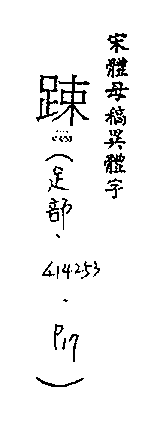 宋體母稿異體字
踈
(足部、414253、P17)